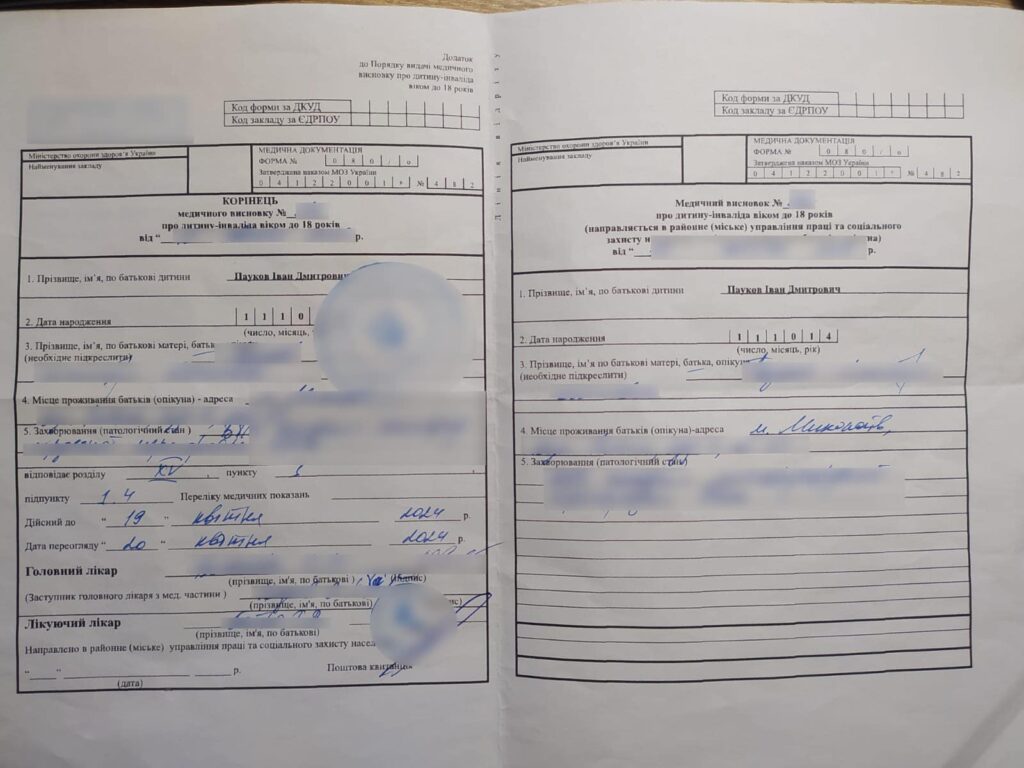 Додаток
до Порядку видачі медичного
висновку про дитину-інваліда
віком до 18 років
Код форми за ДКУД
Код закладу за ЄДРПОУ
Міністерство охорони здоров'я України
Найменування закладу
МЕДИЧНА ДОКУМЕНТАЦІЯ
ФОРМА № 0 8 0 / о
Затверджена наказом МОЗ України
0 4 1 2 2 0 0 1 № 4 8 2
КОРІНЕЦЬ
медичного висновку №
про дитину-інваліда віком до 18 років
від “ р.
1. Прізвище, ім'я, по батькові дитини Пауков Іван Дмитрович
2. Дата народження 1 1 1 0
(число, місяць,
3. Прізвище, ім'я, по батькові матері,
(необхідне підкреслити)
4. Місце проживання батьків (опікуна) - адреса
5. Захворювання (патологічний стан )
відповідає розділу XV пункту
підпункту 1.4 Переліку медичних показань
Дійсний до “ 19 квітня 2024 р.
Дата переогляду “ 20 квітня 2024 р.
Головний лікар
(прізвище, ім'я, по батькові ) (підпис)
(Заступник головного лікаря з мед. частини )
(прізвище, ім'я, по батькові)
Лікуючий лікар
(прізвище, ім'я, по батькові)
Направлено в районне (міське) управління праці та соціального захисту
“ р. Поштова квитанція
(дата)
Лінія відрізу
Код форми за ДКУД
Код закладу за ЄДРПОУ
Міністерство охорони здоров'я України
Найменування закладу
МЕДИЧНА ДОКУМЕНТАЦІЯ
ФОРМА № 0 8 0 / о
Затверджена наказом МОЗ України
0 4 1 2 2 0 0 1 № 4 8 2
Медичний висновок №
про дитину-інваліда віком до 18 років
(направляється в районне (міське) управління праці та соціального
захисту
від “ р.
1. Прізвище, ім'я, по батькові дитини Пауков Іван Дмитрович
2. Дата народження 1 1 1 0 1 4
(число, місяць, рік)
3. Прізвище, ім'я по батькові матері, батька, опікуна
(необхідне підкреслити)
4. Місце проживання батьків (опікуна)-адреса м. Миколаїв,
5. Захворювання (патологічний стан)